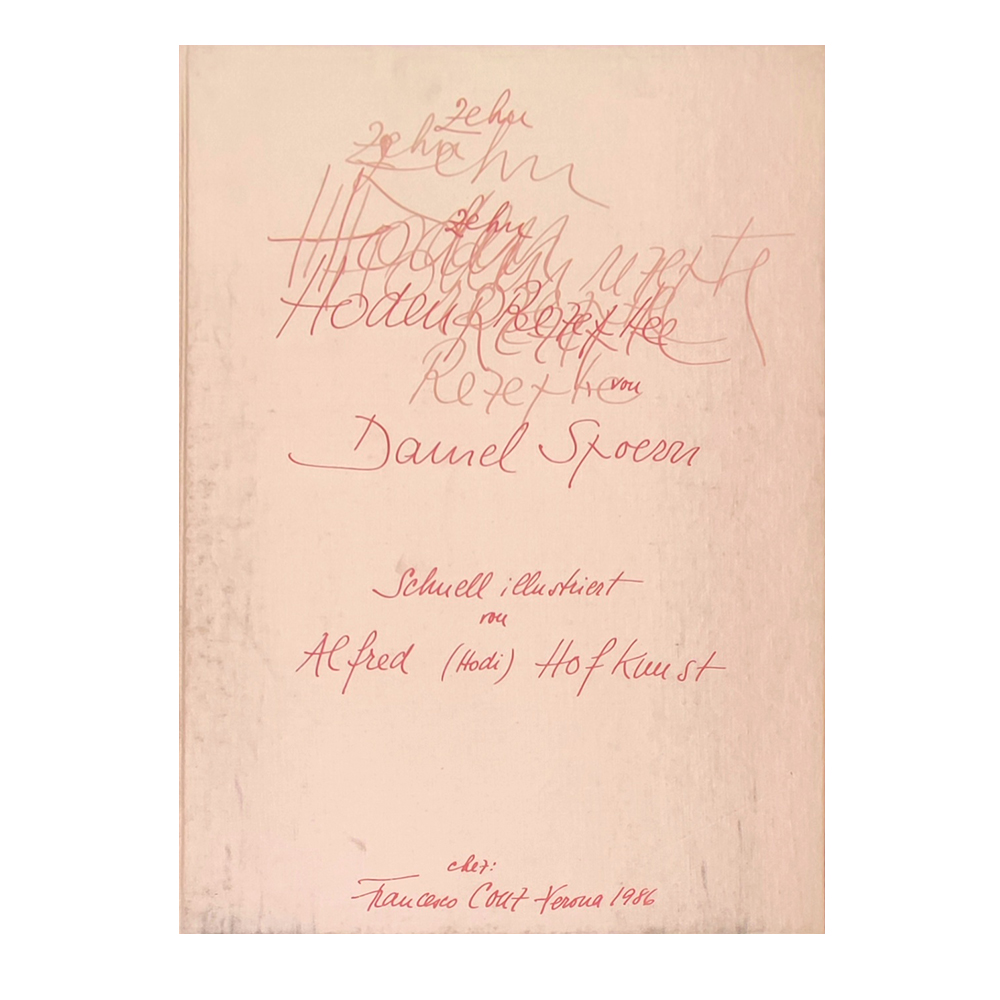 zehn
zehn
zehn
zehn
Hoden Rezepte
Rezepte
von
Daniel Spoerri
Schnell illustriert
von
Alfred (Hodi) Hofkunst
chez:
Francesco Conz Verona 1986